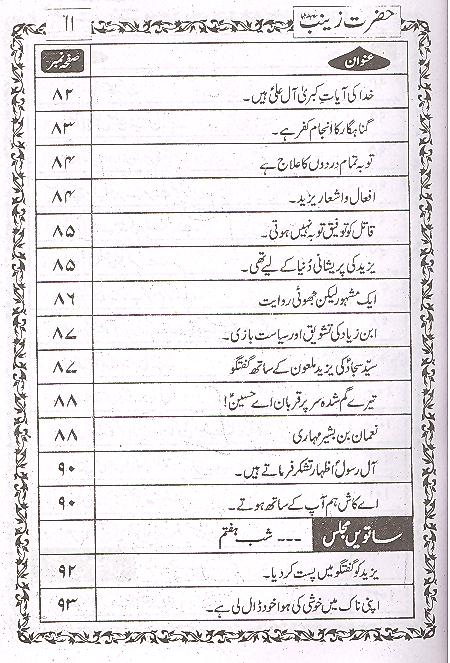 حضرت زینب ۱۱
عنوان صفحہ نمبر
خدا کی آیاتِ کبریٰ آلِ علیؑ ہیں۔ ۸۲
گناہگار کا انجام کفر ہے۔ ۸۳
توبہ تمام دردوں کا علاج ہے ۸۴
افعال و اشعار یزید۔ ۸۴
قاتل کو توفیق توبہ نہیں ہوتی۔ ۸۵
یزید کی پریشانی دُنیا کے لیے تھی۔ ۸۵
ایک مشہور لیکن جھوٹی روایت ۸۶
ابن زیاد کی تشویق اور سیاست بازی۔ ۸۷
سیّد سجادؑ کی یزید ملعون کے ساتھ گفتگو ۸۷
تیرے گم شدہ سر پر قربان اے حسینؑ! ۸۸
نعمان بن بشیر مہاری ۸۸
آل رسولؐ اظہار تشکر فرماتے ہیں۔ ۹۰
اے کاش ہم آپ کے ساتھ ہوتے۔ ۹۰
ساتویں مجلس --- شب ہفتم
یزید کو گفتگو میں پست کر دیا۔ ۹۲
اپنی ناک میں خوشی کی ہوا خود ڈال لی ہے۔ ۹۳